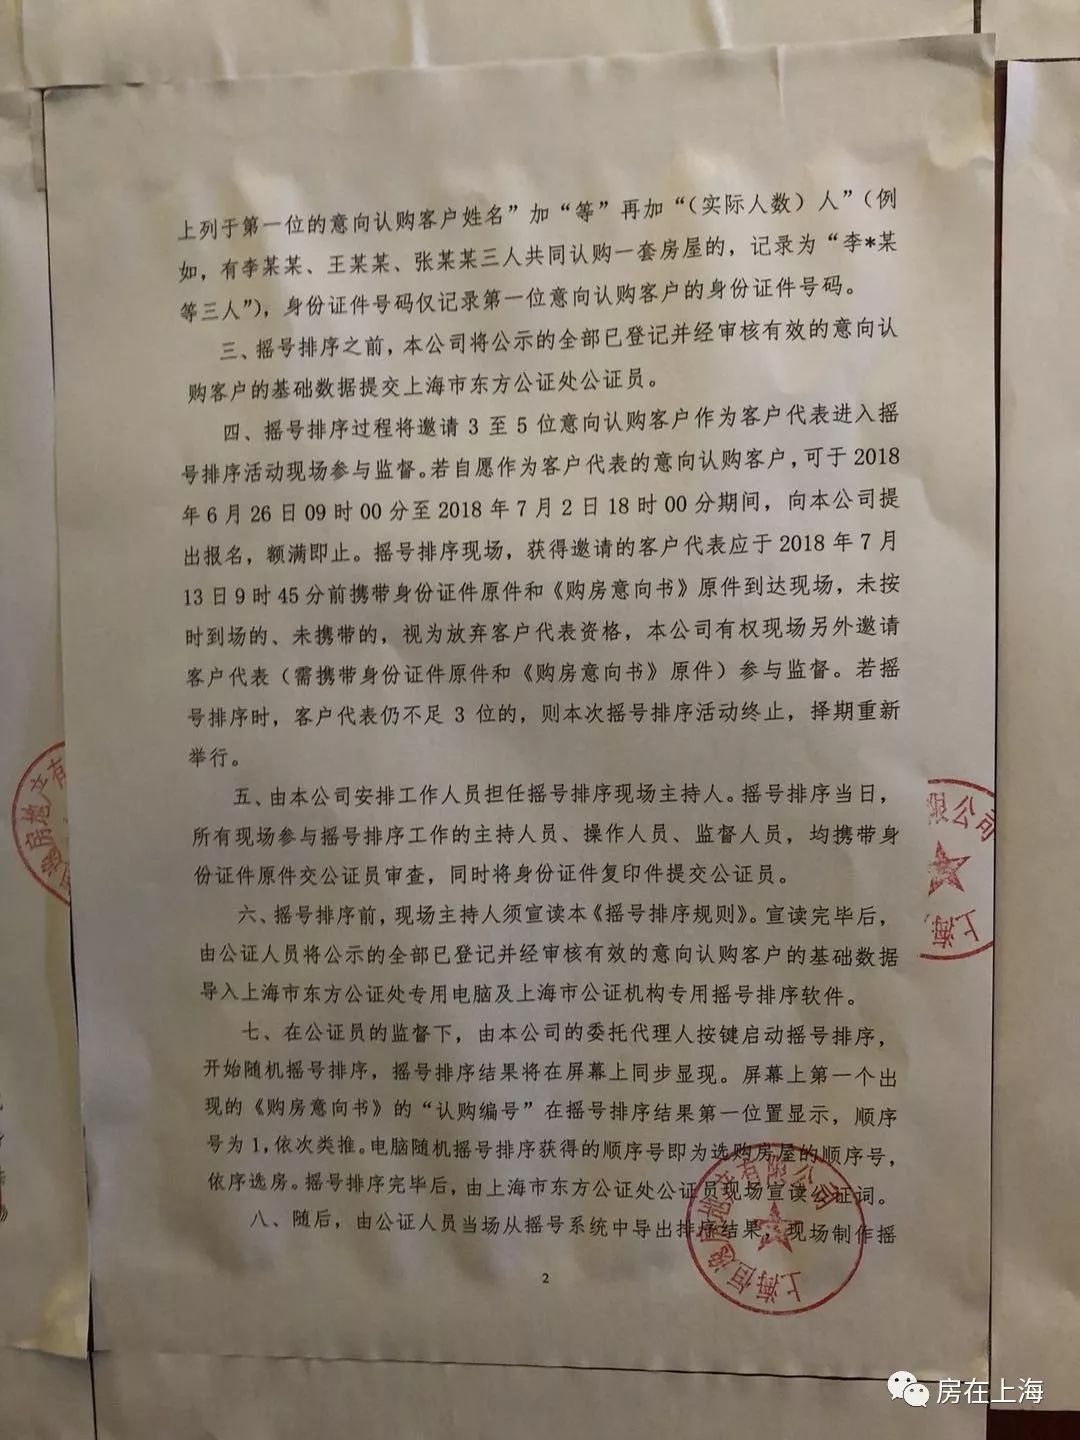 上列于第一位的意向认购客户姓名”加“等”再加“(实际人数)人”(例
如,有李某某、王某某、张某某三人共同认购一套房屋的,记录为“李*某
等三人”),身份证件号码仅记录第一位意向认购客户的身份证件号码。
三、摇号排序之前,本公司将公示的全部已登记并经审核有效的意向认
购客户的基础数据提交上海市东方公证处公证员。
四、摇号排序过程将邀请 3 至 5 位意向认购客户作为客户代表进入摇
号排序活动现场参与监督。若自愿作为客户代表的意向认购客户,可于 2018
年 6 月 26 日 09 时 00 分至 2018 年 7 月 2 日 18 时 00 分期间,向本公司提
出报名,额满即止。摇号排序现场,获得邀请的客户代表应于 2018 年 7 月
13 日 9 时 45 分前携带身份证件原件和《购房意向书》原件到达现场,未按
时到场的、未携带的,视为放弃客户代表资格,本公司有权现场另外邀请
客户代表(需携带身份证件原件和《购房意向书》原件)参与监督。若摇
号排序时,客户代表仍不足 3 位的,则本次摇号排序活动终止,择期重新
举行。
五、由本公司安排工作人员担任摇号排序现场主持人。摇号排序当日,
所有现场参与摇号排序工作的主持人员、操作人员、监督人员,均携带身
份证件原件交公证员审查,同时将身份证件复印件提交公证员。
六、摇号排序前,现场主持人须宣读本《摇号排序规则》。宣读完毕后,
由公证人员将公示的全部已登记并经审核有效的意向认购客户的基础数据
导入上海市东方公证处专用电脑及上海市公证机构专用摇号排序软件。
七、在公证员的监督下,由本公司的委托代理人按键启动摇号排序,
开始随机摇号排序,摇号排序结果将在屏幕上同步显现。屏幕上第一个出
现的《购房意向书》的“认购编号”在摇号排序结果第一位置显示,顺序
号为 1,依次类推。电脑随机摇号排序获得的顺序号即为选购房屋的顺序号,
依序选房。摇号排序完毕后,由上海市东方公证处公证员现场宣读公证词。
八、随后,由公证人员当场从摇号系统中导出排序结果,现场制作摇
2
房在上海